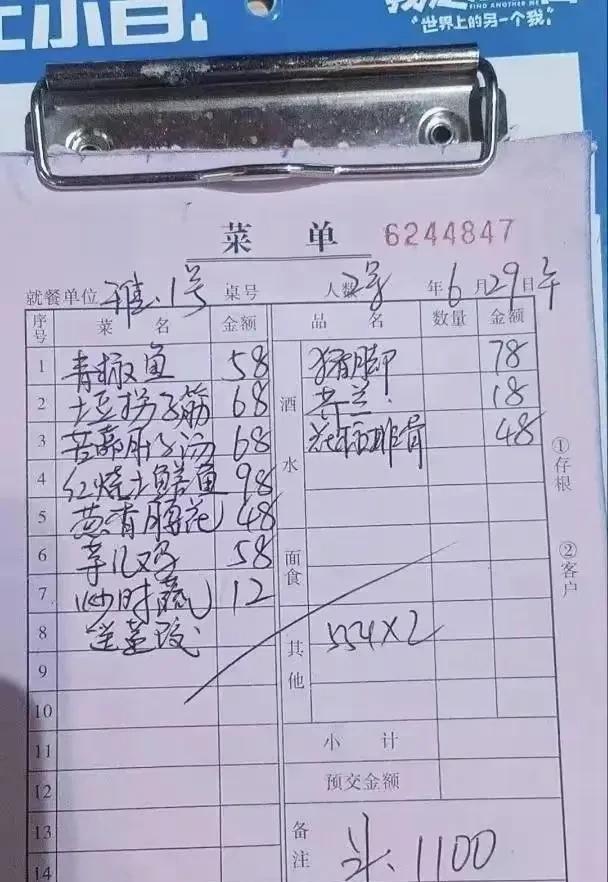 世界上的另一个我
FIND ANOTHER ME
菜 单 6244847
就餐单位 雅.1号 桌号 人数 年6月29日午
序号 菜 名 金额 品 名 数量 金额
1 青椒鱼 58 猪脚 78
2 土豆拐子筋 68 酒水 18
3 68 排骨 48
4 红烧土鳝鱼 98
5 48
6 58 面食
7 炒时蔬 12
8 其他 554×2
9
10
11 小 计
12 预交金额
13 备注 1100
14
①存根
②客户